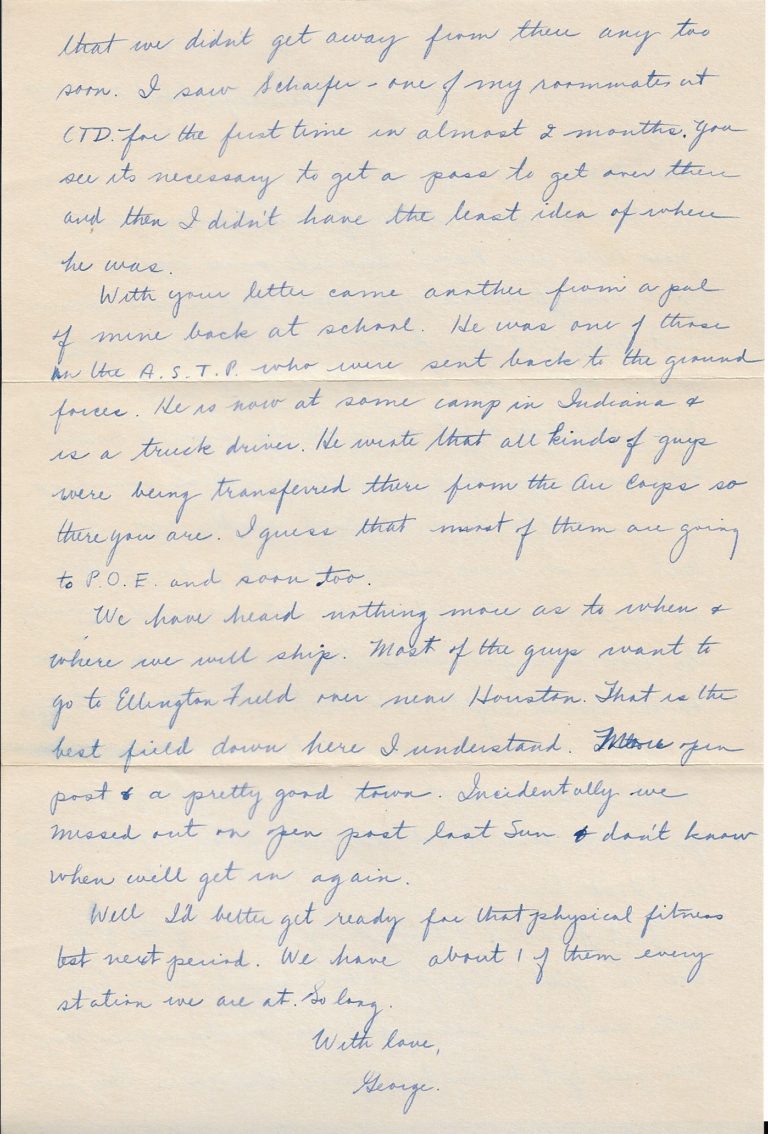 that we didn't get away from there any too
soon. I saw Schaefer - one of my roommates at
CTD - for the first time in almost 2 months. You
see its necessary to get a pass to get over there
and then I didn't have the least idea of where
he was.
With your letter came another from a pal
of mine back at school. He was one of those
in the A.S.T.P. who were sent back to the ground
forces. He is now at some camp in Indiana &
is a truck driver. He wrote that all kinds of guys
were being transferred there from the Air Corps so
there you are. I guess that most of them are going
to P.O.E. and soon too.
We have heard nothing more as to when &
where we will ship. Most of the guys want to
go to Ellington Field over near Houston. That is the
best field down here I understand. More open
post & a pretty good town. Incidentally we
missed out on open post last Sun & don't know
when we'll get in again.
Well I'd better get ready for that physical fitness
test next period. We have about 1 of them every
station we are at. So long.
With love,
George.